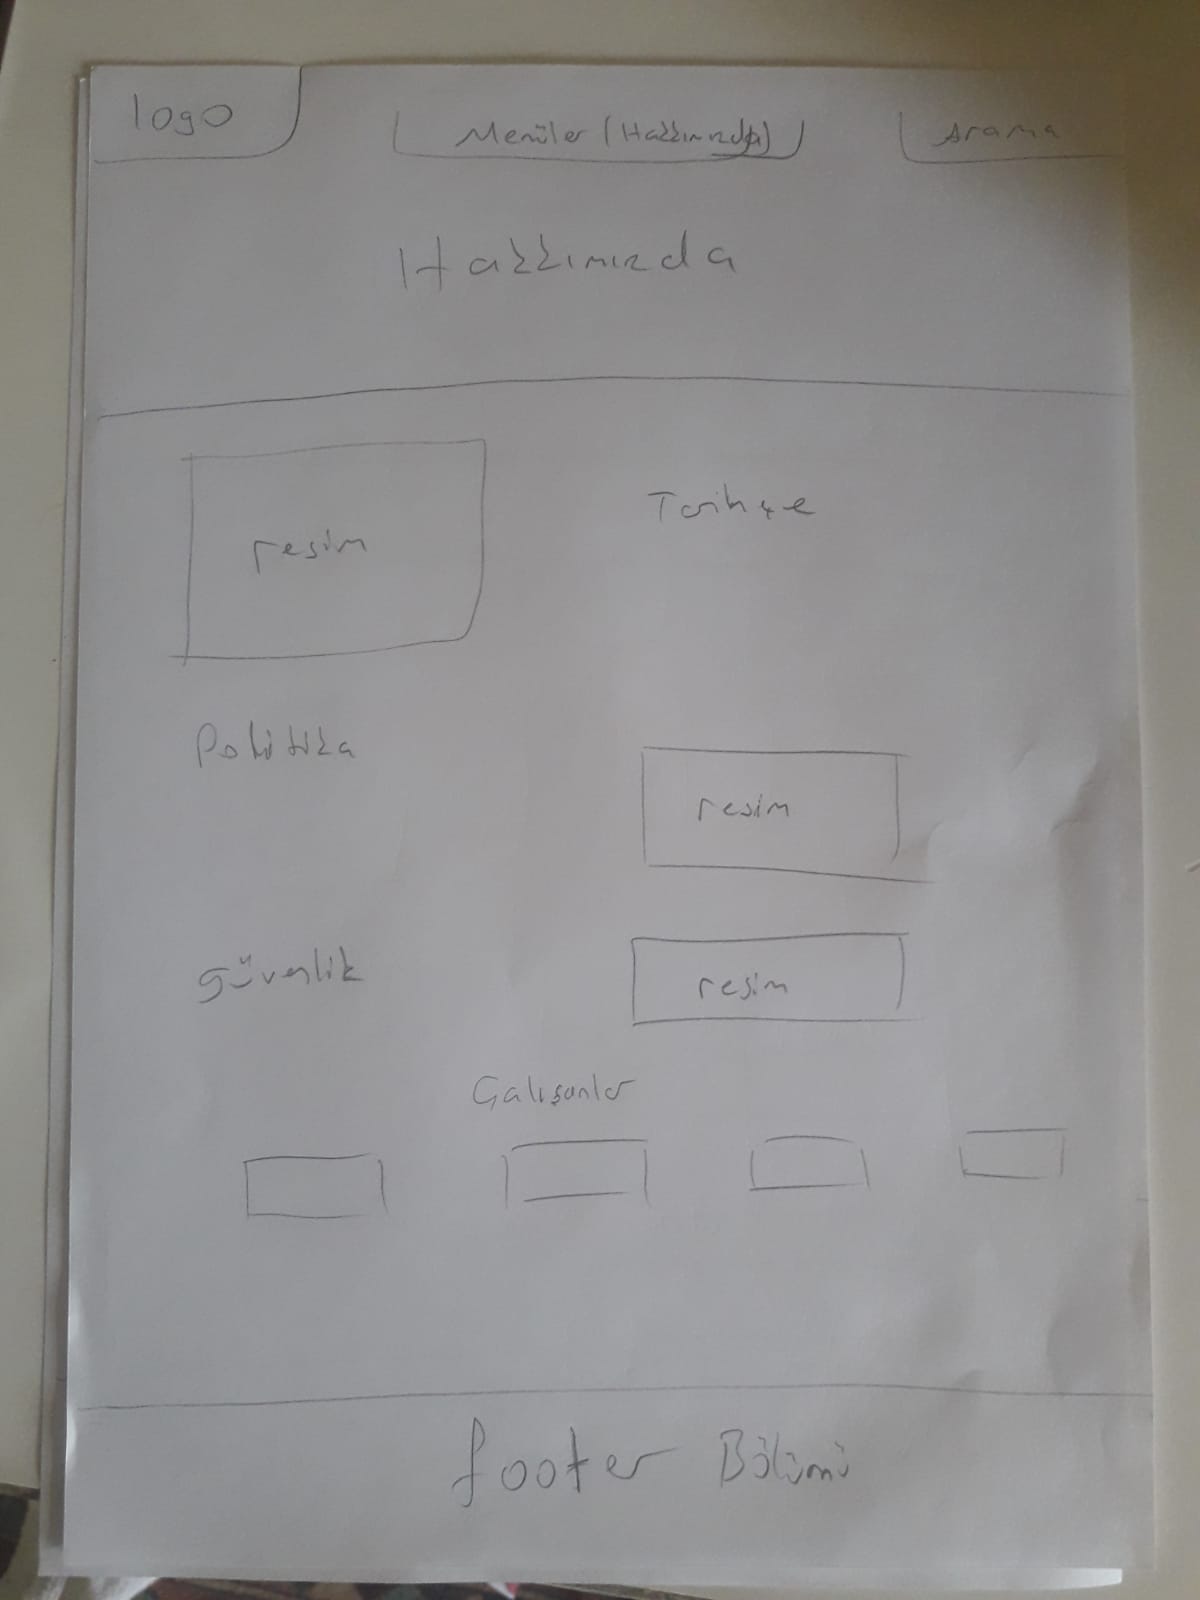 logo
Menüler (Hakkımızda)
Arama
Hakkımızda
resim
Tarihçe
Politika
resim
güvenlik
resim
Çalışanlar
footer Bölümü